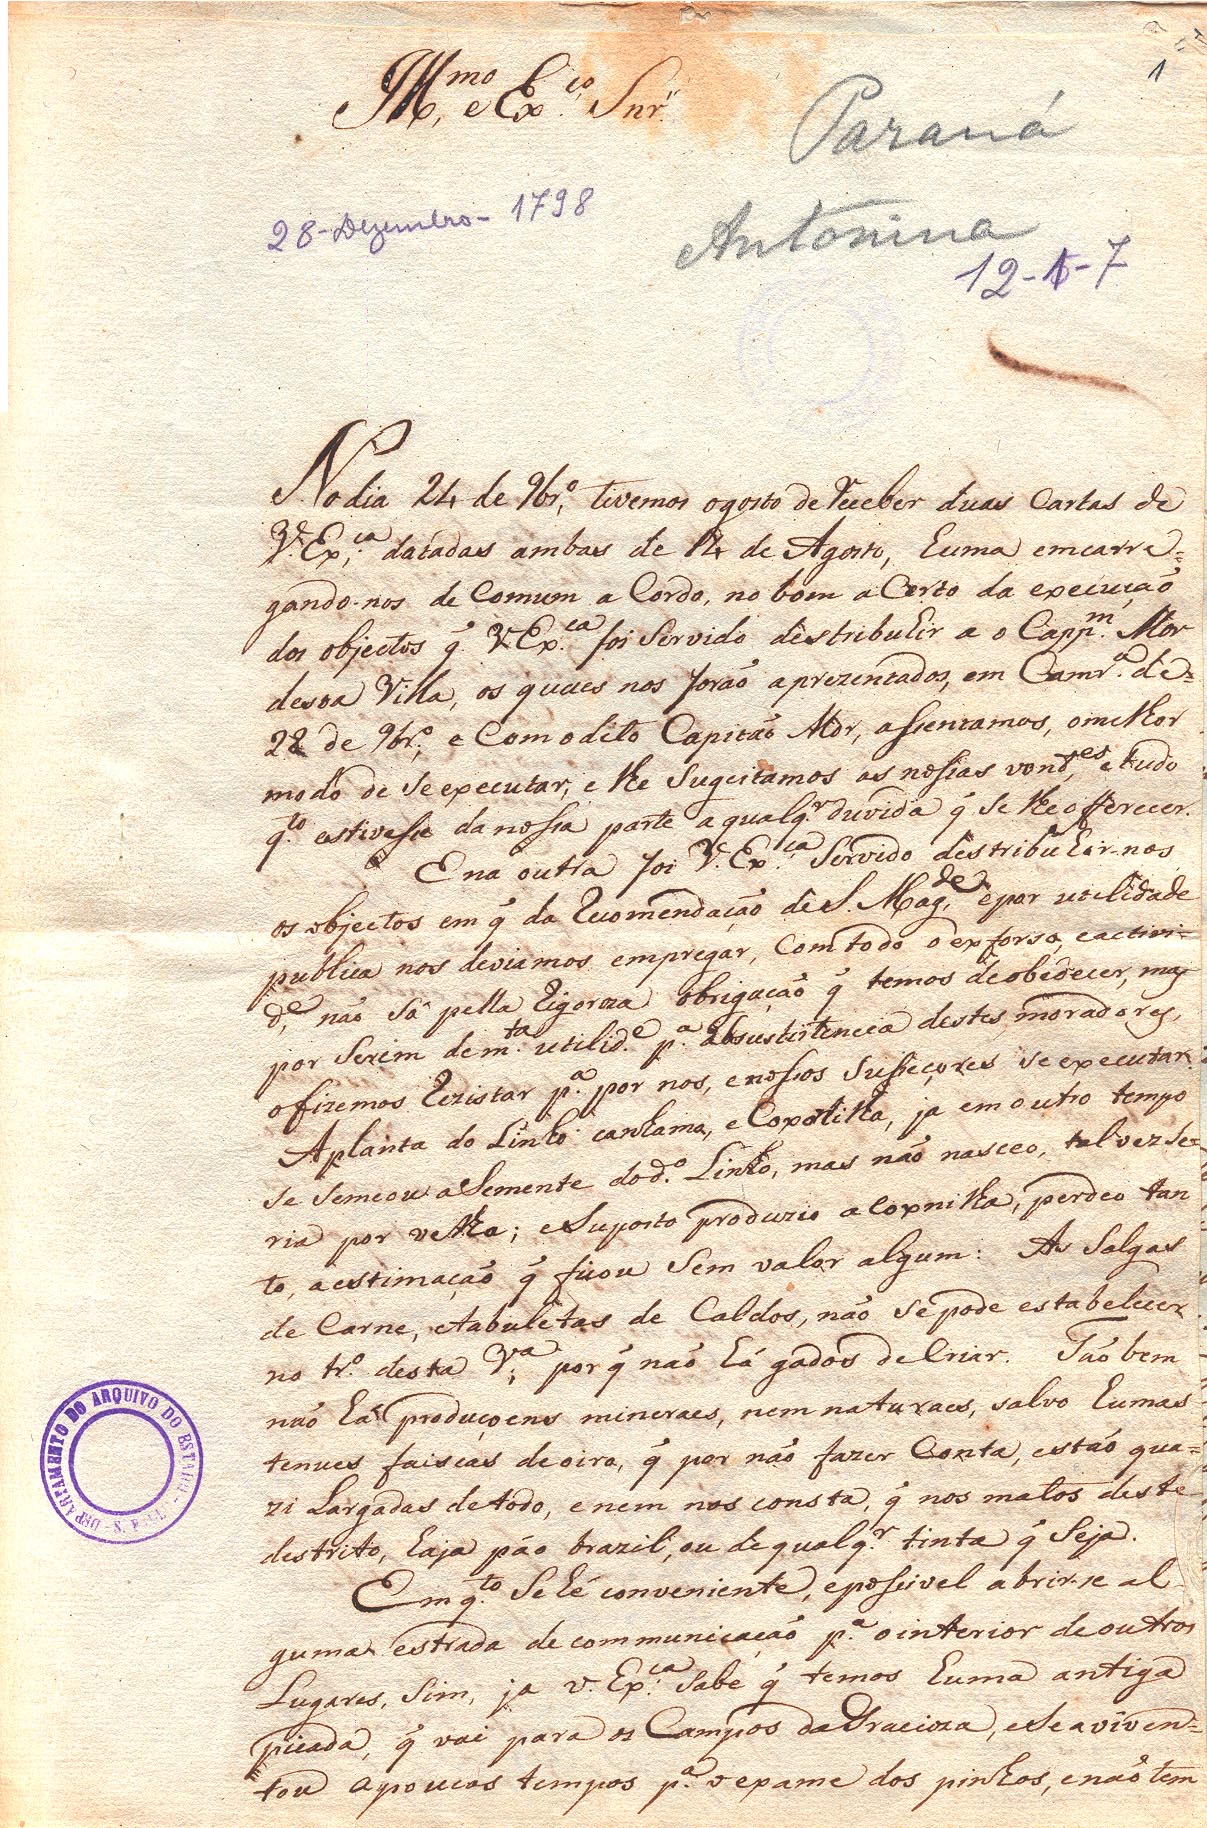 1
Illmo. e Exço. Snr."
Paraná
28-Dezembro-1798
Antonina
12-1-7
No dia 24 de 9bro., tivemos o gosto de receber duas Cartas de
V. Exca., datadas ambas de 14 de Agosto, huma emcarre=
gando-nos de Comum a Cordo, no bom aCerto da execução
dos objectos q̃ V. Exca. foi Servido destribuhir a o Cappm. Mor
desta Villa, os quaes nos forão aprezentados, em Camra. de=
28 de 9bro., e Com o dito Capitão Mor, assentamos, o melhor
modo de Se executar, e lhe Sugeitamos as nossas vondes., e tudo
qto. estivesse da nossa parte a qualqr. duvida q̃ se lhe offerecer.
E na outra foi V. Exca. Servido destribuhir-nos
os objectos em q̃ da Recomendação de S. Magde., e por utilidade
publica nos deviamos empregar, Com todo o exforso, e activi-
de., não Só pella Rigoroza obrigação q̃ temos de obedecer, mas
por Serem de mta. utilide. pa. a Subsistencia destes moradores,
o fizemos Rezistar pa. por nos, e nossos Sussecores se executar.
A planta do Linho canhamo, e Coxonilha, ja em outro tempo
se Semeou a Semente do do. Linho, mas não nasceo, talvez Se=
ria por velha; e Suposto produzio a coxnilha, perdeo tan
to, a estimação q̃ ficou Sem valor algum: As Salgas
de Carne, e tabuletas de Caldos, não Se pode estabelecer
no tro. desta Va., por q̃ não há gados de Criar. Tão bem
não há produçoens mineraes, nem naturaes, salvo humas
tenues faiscas de oiro, q̃ por não fazer Conta, estão qua=
zi Largadas de todo, e nem nos consta, q̃ nos matos deste
destrito, haja páo brazil, ou de qualqr. tinta q̃ Seja.
Em qto. Se hé conveniente, e possivel abrir-se al-
guma estrada de communicação pa. o interior de outros
Lugares, Sim, ja V. Exca. Sabe q̃ temos huma antiga
picada, q̃ vai para os Campos da Gracioza, e Se aviven=
tou a poucos tempos pa. vexame dos pinhos, e não tem
DEPARTAMENTO DO ARQUIVO DO ESTADO